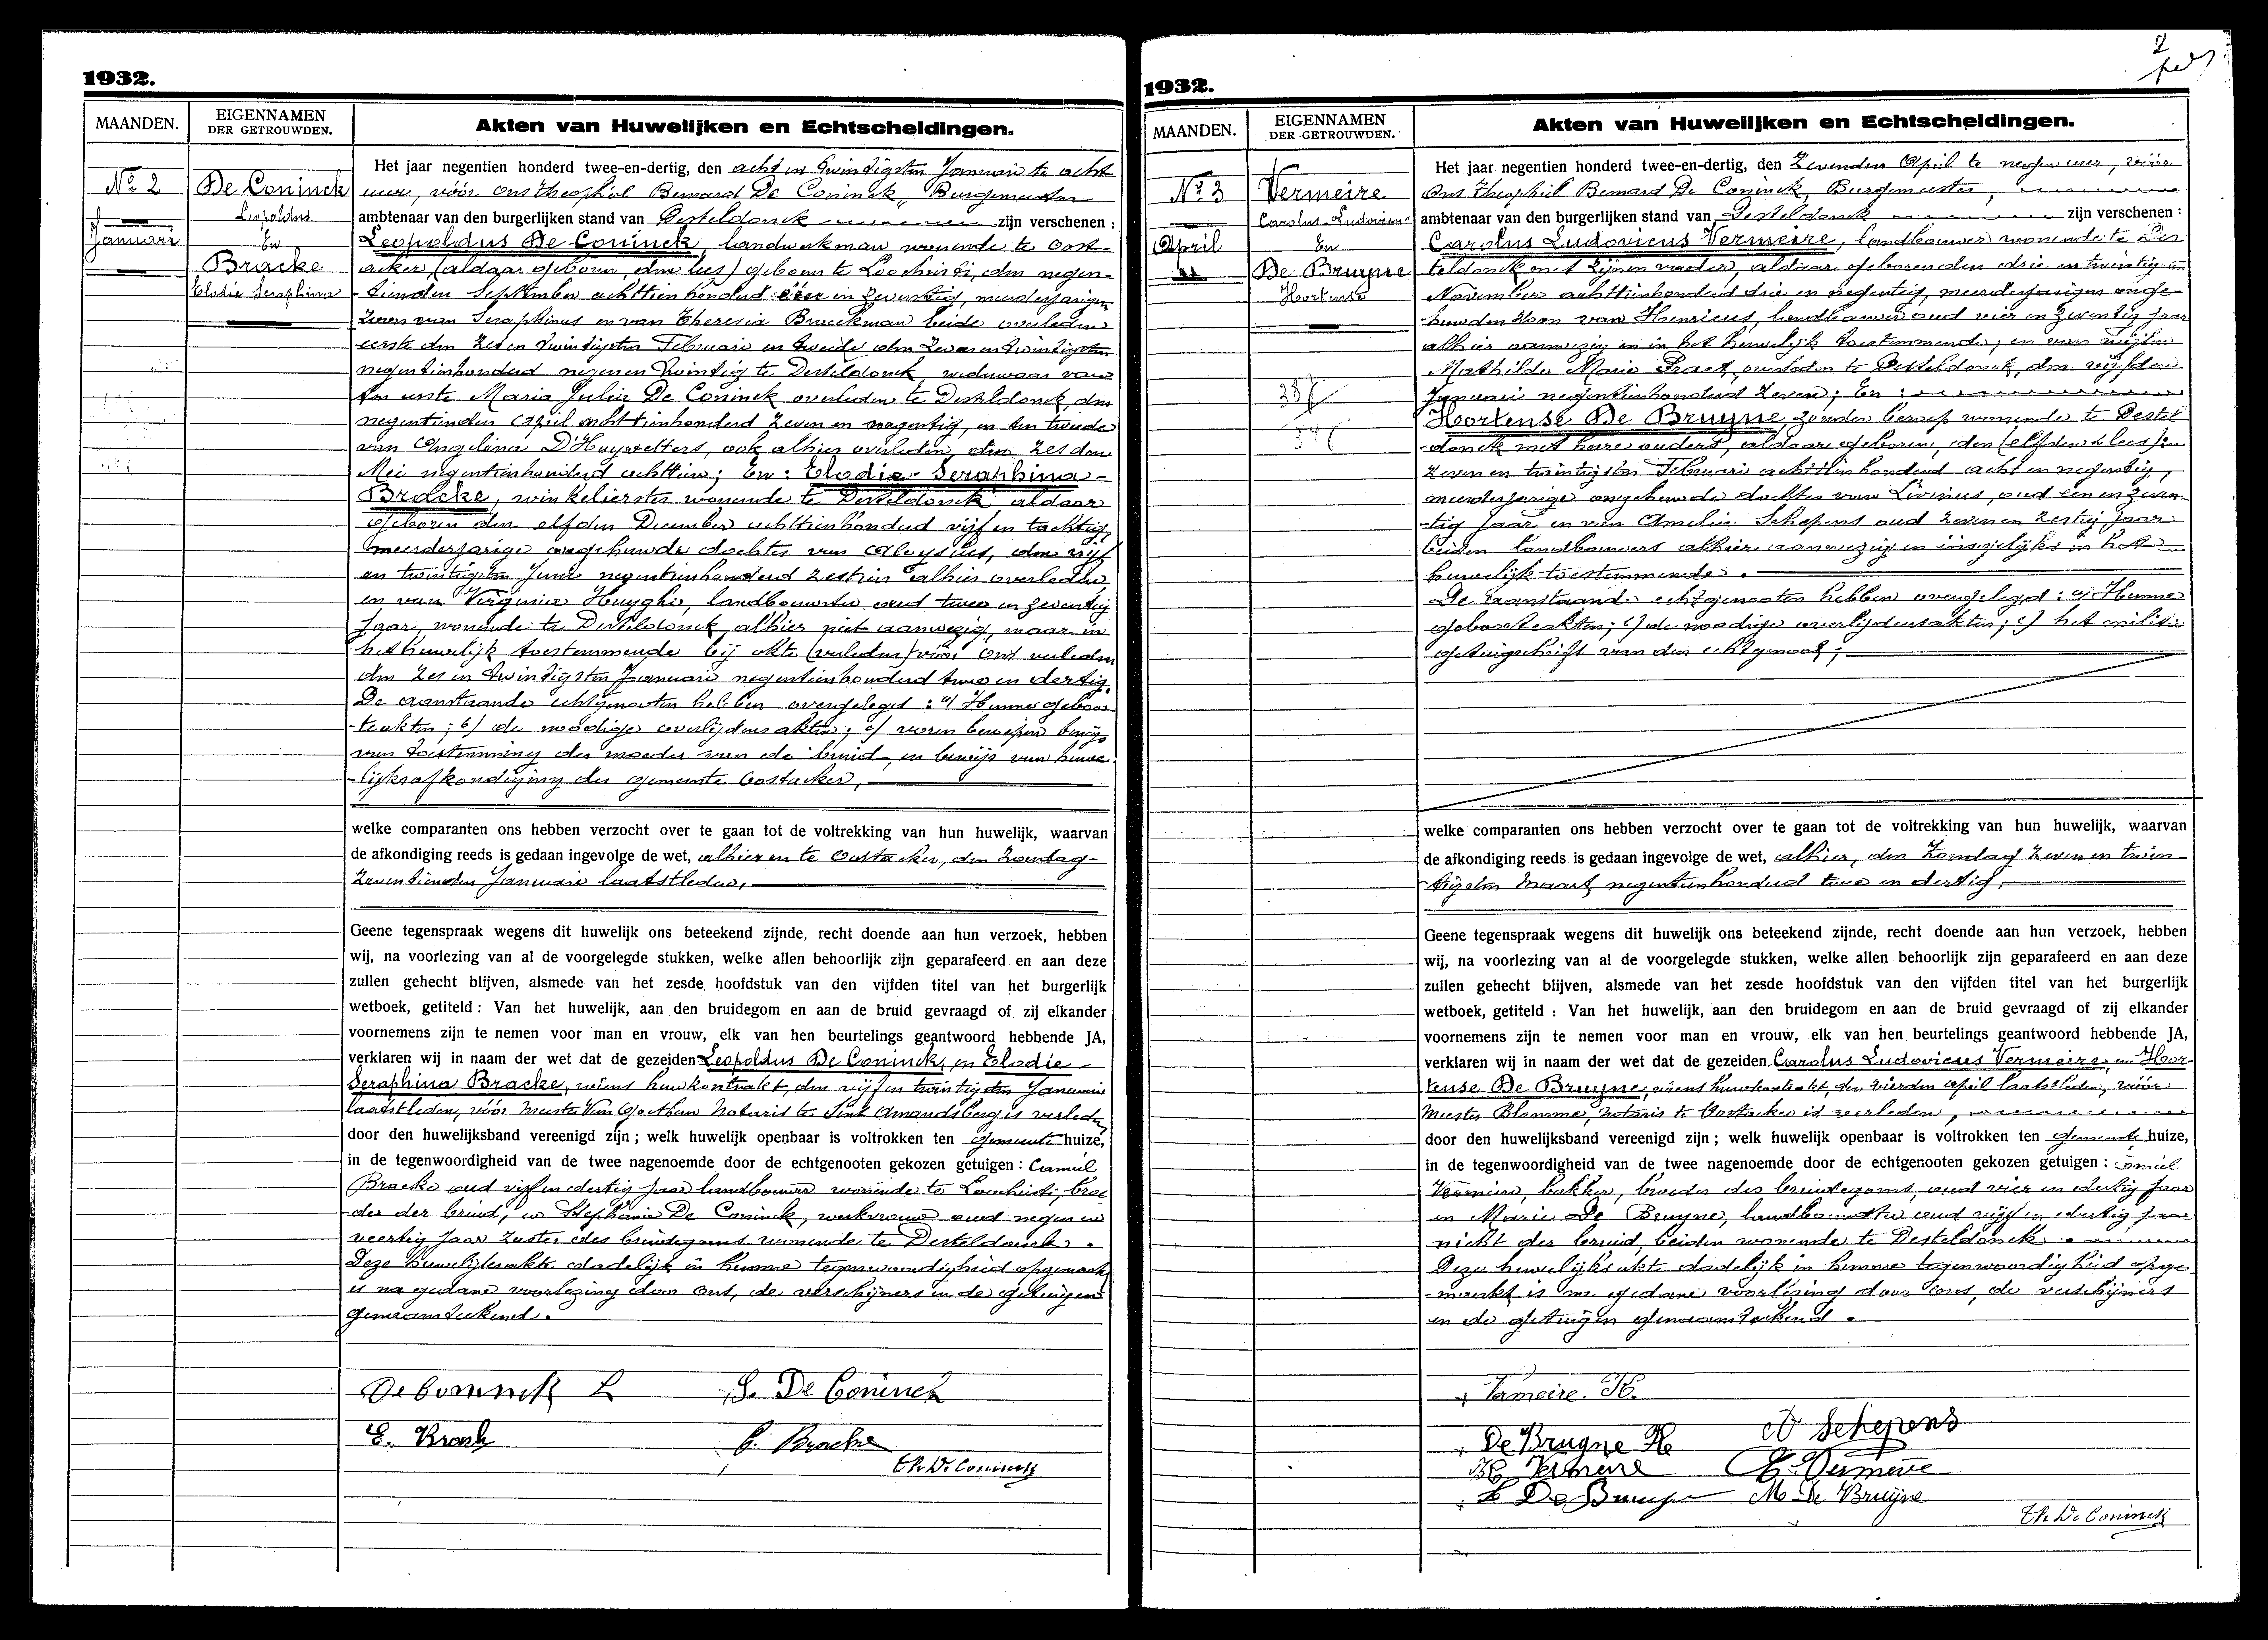 1932.
MAANDEN.
EIGENNAMEN
DER GETROUWDEN.
Akten van Huwelijken en Echtscheidingen.
No 2
Januari
De Coninck
Leopoldus
En
Bracke
Elodie Seraphina
Het jaar negentien honderd twee-en-dertig, den acht en twintigsten Januari te acht
uur, vóór ons Theophiel Bernard De Coninck, Burgemeester
ambtenaar van den burgerlijken stand van Desteldonck zijn verschenen :
Leopoldus De Coninck, landwerkman wonende te Oost-
acker, (aldaar geboren, den lees) geboren te Loochristi, den negen-
tienden September achttienhonderd één en zeventig, meerderjarigen
zoon van Seraphinus en van Theresia Braeckman beide overleden
eerste den zes en twintigsten Februari en tweede den zeven en twintigsten
negentienhonderd negen en twintig te Desteldonck, weduwaar van
ten eerste Maria Julia De Coninck overleden te Desteldonck, den
negentienden April achttienhonderd zeven en negentig, en ten tweede
van Angelina D'Huyvetters, ook alhier overleden, den zesden
Mei negentienhonderd achttien; En: Elodie Seraphina-
Bracke, winkelierster wonende te Desteldonck aldaar
geboren den elfden December achttienhonderd vijf en tachtig,
meerderjarige ongehuwde dochter van Aloysius, den vijf
en twintigsten Juni negentienhonderd zestien alhier overleden,
en van Virginie Huyghe, landbouwster oud twee en zeventig
jaar, wonende te Desteldonck, alhier niet aanwezig, maar in
het huwelijk toestemmende bij akte (verleden) vóór ons verleden
den zes en twintigsten Januari negentienhonderd twee en dertig.
De aanstaande echtgenooten hebben overgelegd : a/ Hunne geboor-
teakten; b/ de noodige overlijdensakten; c/ voren bewezen bewijs
van toestemming der moeder van de bruid, en bewijs van huwe-
lijksafkondiging der gemeente Oostacker,
welke comparanten ons hebben verzocht over te gaan tot de voltrekking van hun huwelijk, waarvan
de afkondiging reeds is gedaan ingevolge de wet, alhier en te Oostacker, den Zondag-
zeventienden Januari laatstleden,
Geene tegenspraak wegens dit huwelijk ons beteekend zijnde, recht doende aan hun verzoek, hebben
wij, na voorlezing van al de voorgelegde stukken, welke allen behoorlijk zijn geparafeerd en aan deze
zullen gehecht blijven, alsmede van het zesde hoofdstuk van den vijfden titel van het burgerlijk
wetboek, getiteld : Van het huwelijk, aan den bruidegom en aan de bruid gevraagd of zij elkander
voornemens zijn te nemen voor man en vrouw, elk van hen beurtelings geantwoord hebbende JA,
verklaren wij in naam der wet dat de gezeiden Leopoldus De Coninck, en Elodie-
Seraphina Bracke, wiens huwkontrakt, den vijf en twintigsten Januari
laatstleden, vóór Meester Van Goethem Notaris te Sint Amandsberg is verleden
door den huwelijksband vereenigd zijn ; welk huwelijk openbaar is voltrokken ten gemeente huize,
in de tegenwoordigheid van de twee nagenoemde door de echtgenooten gekozen getuigen : Camiel
Bracke oud vijf en dertig jaar landbouwer wonende te Loochristi, broe-
der der bruid, en Stephanie De Coninck, werkvrouw oud negen en
veertig jaar zuster des bruidegoms wonende te Desteldonck.
Deze huwelijksakte dadelijk in hunne tegenwoordigheid opgemaakt
is na gedane voorlezing door ons, de verschijners en de getuigen
genaamteekend.
De Coninck L
S. De Coninck
E. Brack
C. Bracke
Th De Coninck
1932.
MAANDEN.
EIGENNAMEN
DER GETROUWDEN.
Akten van Huwelijken en Echtscheidingen.
No 3
April
Vermeire
Carolus Ludovicus
En
De Bruyne
Hortense
Het jaar negentien honderd twee-en-dertig, den Zevenden April te negen uur, vóór
ons Theophiel Bernard De Coninck, Burgemeester,
ambtenaar van den burgerlijken stand van Desteldonck zijn verschenen :
Carolus Ludovicus Vermeire, landbouwer wonende te Des-
teldonck met zijnen vader, aldaar geboren den drie en twintigsten
November achttienhonderd drie en negentig, meerderjarigen onge-
huwden zoon van Henricus, landbouwer oud vier en zeventig jaar
alhier aanwezig en in het huwelijk toestemmende, en van wijlen
Mathilde Marie Praet, overleden te Desteldonck, den vijfden
Januari negentienhonderd zeven; En:
Hortense De Bruyne, zonder beroep wonende te Destel-
donck met hare ouders, aldaar geboren, den (elfden lees):
zeven en twintigsten Februari achttienhonderd acht en negentig,
meerderjarige ongehuwde dochter van Livinus, oud een en zeven-
tig jaar en van Amelia Schepens oud zeven en zestig jaar
beiden landbouwers alhier aanwezig en insgelijks in het
huwelijk toestemmende.
De aanstaande echtgenooten hebben overgelegd : a/ Hunne
geboorteakten; b/ de noodige overlijdensakten; c/ het militie
getuigschrift van den echtgenoot;
welke comparanten ons hebben verzocht over te gaan tot de voltrekking van hun huwelijk, waarvan
de afkondiging reeds is gedaan ingevolge de wet, alhier, den Zondag zeven en twin-
tigsten Maart negentienhonderd twee en dertig,
Geene tegenspraak wegens dit huwelijk ons beteekend zijnde, recht doende aan hun verzoek, hebben
wij, na voorlezing van al de voorgelegde stukken, welke allen behoorlijk zijn geparafeerd en aan deze
zullen gehecht blijven, alsmede van het zesde hoofdstuk van den vijfden titel van het burgerlijk
wetboek, getiteld : Van het huwelijk, aan den bruidegom en aan de bruid gevraagd of zij elkander
voornemens zijn te nemen voor man en vrouw, elk van hen beurtelings geantwoord hebbende JA,
verklaren wij in naam der wet dat de gezeiden Carolus Ludovicus Vermeire, en Hor-
tense De Bruyne, wiens huwkontrakt, den vierden April laatstleden, vóór
Meester Blomme, notaris te Oostacker is verleden,
door den huwelijksband vereenigd zijn ; welk huwelijk openbaar is voltrokken ten gemeente huize,
in de tegenwoordigheid van de twee nagenoemde door de echtgenooten gekozen getuigen : Emiel
Vermeire, bakker, broeder des bruidegoms, oud vier en dertig jaar
en Marie De Bruyne, landbouwster oud vijf en dertig jaar
nicht der bruid, beiden wonende te Desteldonck.
Deze huwelijksakte dadelijk in hunne tegenwoordigheid opge-
maakt is na gedane voorlezing door ons, de verschijners
en de getuigen genaamteekend.
Vermeire. K.
De Bruyne H
A Schepens
H Vermeire
E. Vermeire
L De Bruyne
M De Bruijne
Th De Coninck